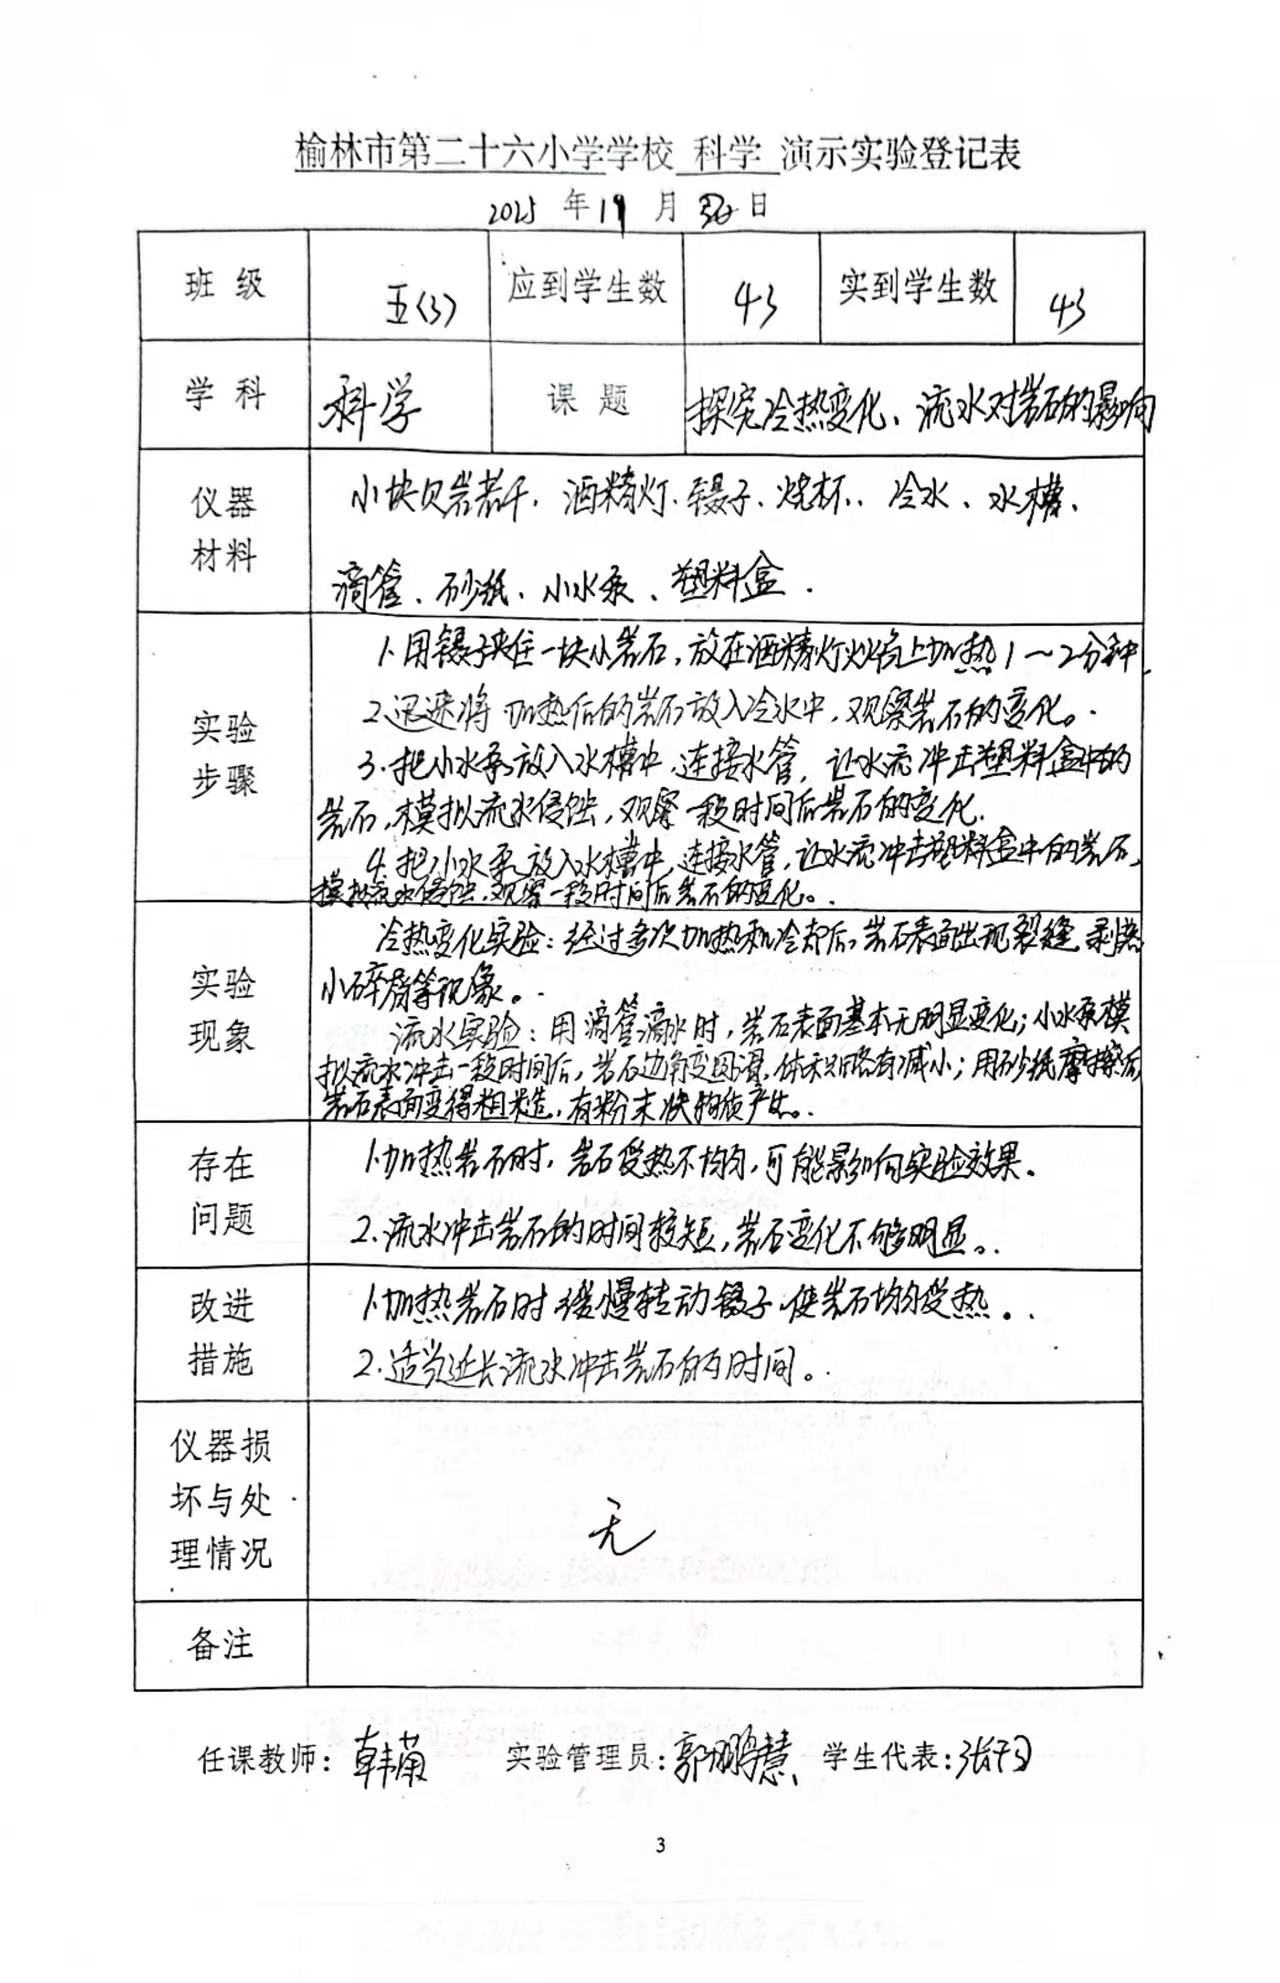 榆林市第二十六小学学校 科学 演示实验登记表
2025 年 11 月 日
班 级 五(3) 应到学生数 43 实到学生数 43
学 科 科学 课 题 探究冷热变化、流水对岩石的影响
仪器材料
小块贝岩若干、酒精灯、镊子、烧杯、冷水、水槽、
滴管、砂纸、小水泵、塑料盒.
实验步骤
1.用镊子夹住一块小岩石,放在酒精灯火焰上加热1~2分钟.
2.迅速将加热后的岩石放入冷水中,观察岩石的变化。
3.把小水泵放入水槽中,连接水管,让水流冲击塑料盒中的
岩石,模拟流水侵蚀,观察一段时间后岩石的变化.
4.把小水泵放入水槽中,连接水管,让水流冲击塑料盒中的岩石,
模拟流水侵蚀,观察一段时间后岩石的变化。
实验现象
冷热变化实验:经过多次加热和冷却后,岩石表面出现裂缝、剥落
小碎屑等现象。
流水实验:用滴管滴水时,岩石表面基本无明显变化;小水泵模
拟流水冲击一段时间后,岩石边角变圆滑,体积略有减小;用砂纸摩擦后
岩石表面变得粗糙,有粉末状物质产生。
存在问题
1.加热岩石时,岩石受热不均匀,可能影响实验效果。
2.流水冲击岩石的时间较短,岩石变化不够明显。
改进措施
1.加热岩石时缓慢转动镊子,使岩石均匀受热。
2.适当延长流水冲击岩石的时间。
仪器损坏与处理情况
无
备注
任课教师:韩菊 实验管理员:郭鹏慧 学生代表:张
3